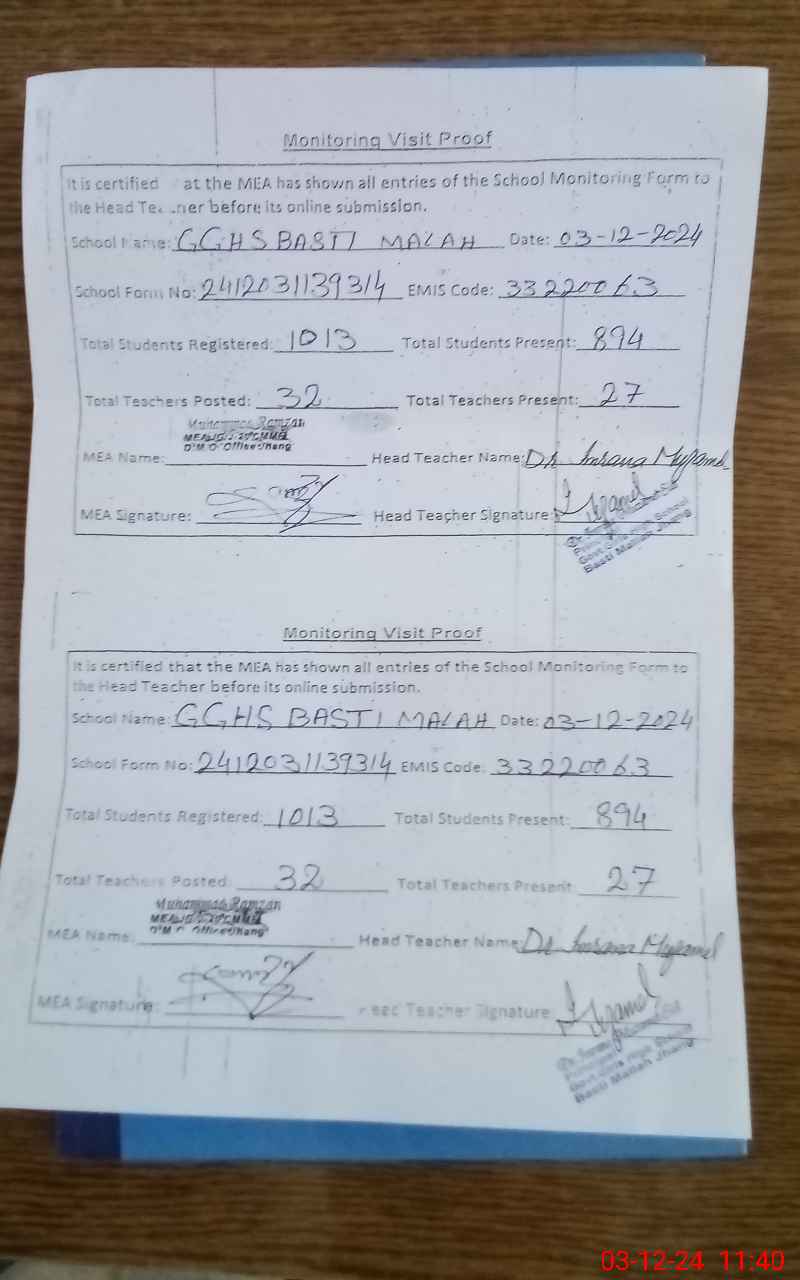 Monitoring Visit Proof
It is certified at the MEA has shown all entries of the School Monitoring Form to
the Head Teacher before its online submission.
School Name: GGHS BASTI MALAH Date: 03-12-2024
School Form No: 2412031139314 EMIS Code: 33220063
Total Students Registered: 1013 Total Students Present: 894
Total Teachers Posted: 32 Total Teachers Present: 27
Muhammad Ramzan
D.M.O Office Jhang
MEA Name: Head Teacher Name: Dr Imrana
MEA Signature: Head Teacher Signature
Principal
Govt. Girls High School
Basti Mallah Jhang
Monitoring Visit Proof
It is certified that the MEA has shown all entries of the School Monitoring Form to
the Head Teacher before its online submission.
School Name: GGHS BASTI MALAH Date: 03-12-2024
School Form No: 2412031139314 EMIS Code: 33220063
Total Students Registered: 1013 Total Students Present: 894
Total Teachers Posted: 32 Total Teachers Present: 27
Muhammad Ramzan
D.M.O Office Jhang
MEA Name: Head Teacher Name: Dr Imrana
MEA Signature: Head Teacher Signature
Principal
Govt. Girls High School
Basti Mallah Jhang
03-12-24 11:40